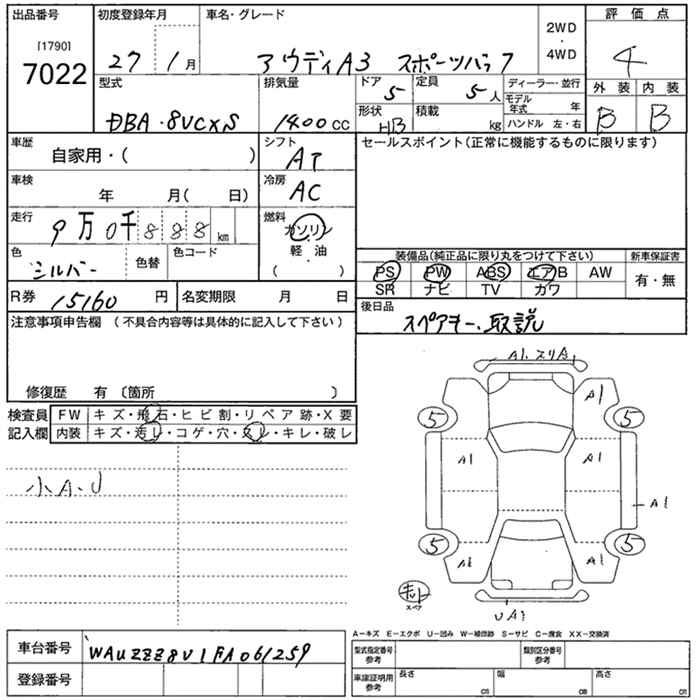 出品番号 初度登録年月 車名・グレード 2WD・4WD 評価点
[1790]
7022 27 1月 アウディA3 スポーツバック 4
型式 排気量 ドア 定員 ディーラー・並行 外装 内装
DBA・8VCXS 1400cc 5 5人 モデル年式 年 B B
形状 HB 積載 kg ハンドル 左・右
車歴 自家用・( ) シフト AT セールスポイント(正常に機能するものに限ります)
車検 年 月( 日) 冷房 AC
走行 9万0千888km 燃料 ガソリン
軽・油
( ・ )
色 シルバー 色替 色コード
装備品(純正品に限り丸をつけて下さい) 新車保証書
PS PW ABS エアB AW 有・無
SR ナビ TV カワ
R券 15160円 名変期限 月 日 後日品
スペアキー、取説
注意事項申告欄(不具合内容等は具体的に記入して下さい)
修復歴 有〔箇所 〕
検査員 FW キズ・飛石・ヒビ割・リペア跡・X要
記入欄 内装 キズ・汚レ・コゲ・穴・スレ・キレ・破レ
小A.U
A1.スリA
A1
5 5
A1 A1
A1
5 5
A1 A1
キット
スペア
UA1
A-キズ E-エクボ U-凹み W-補修跡 S-サビ C-腐食 XX-交換済
車台番号 WAUZZZ8V1FA061259
型式指定番号 参考 類別区分番号 参考
登録番号
車庫証明用 参考 長さ cm 幅 cm 高さ cm